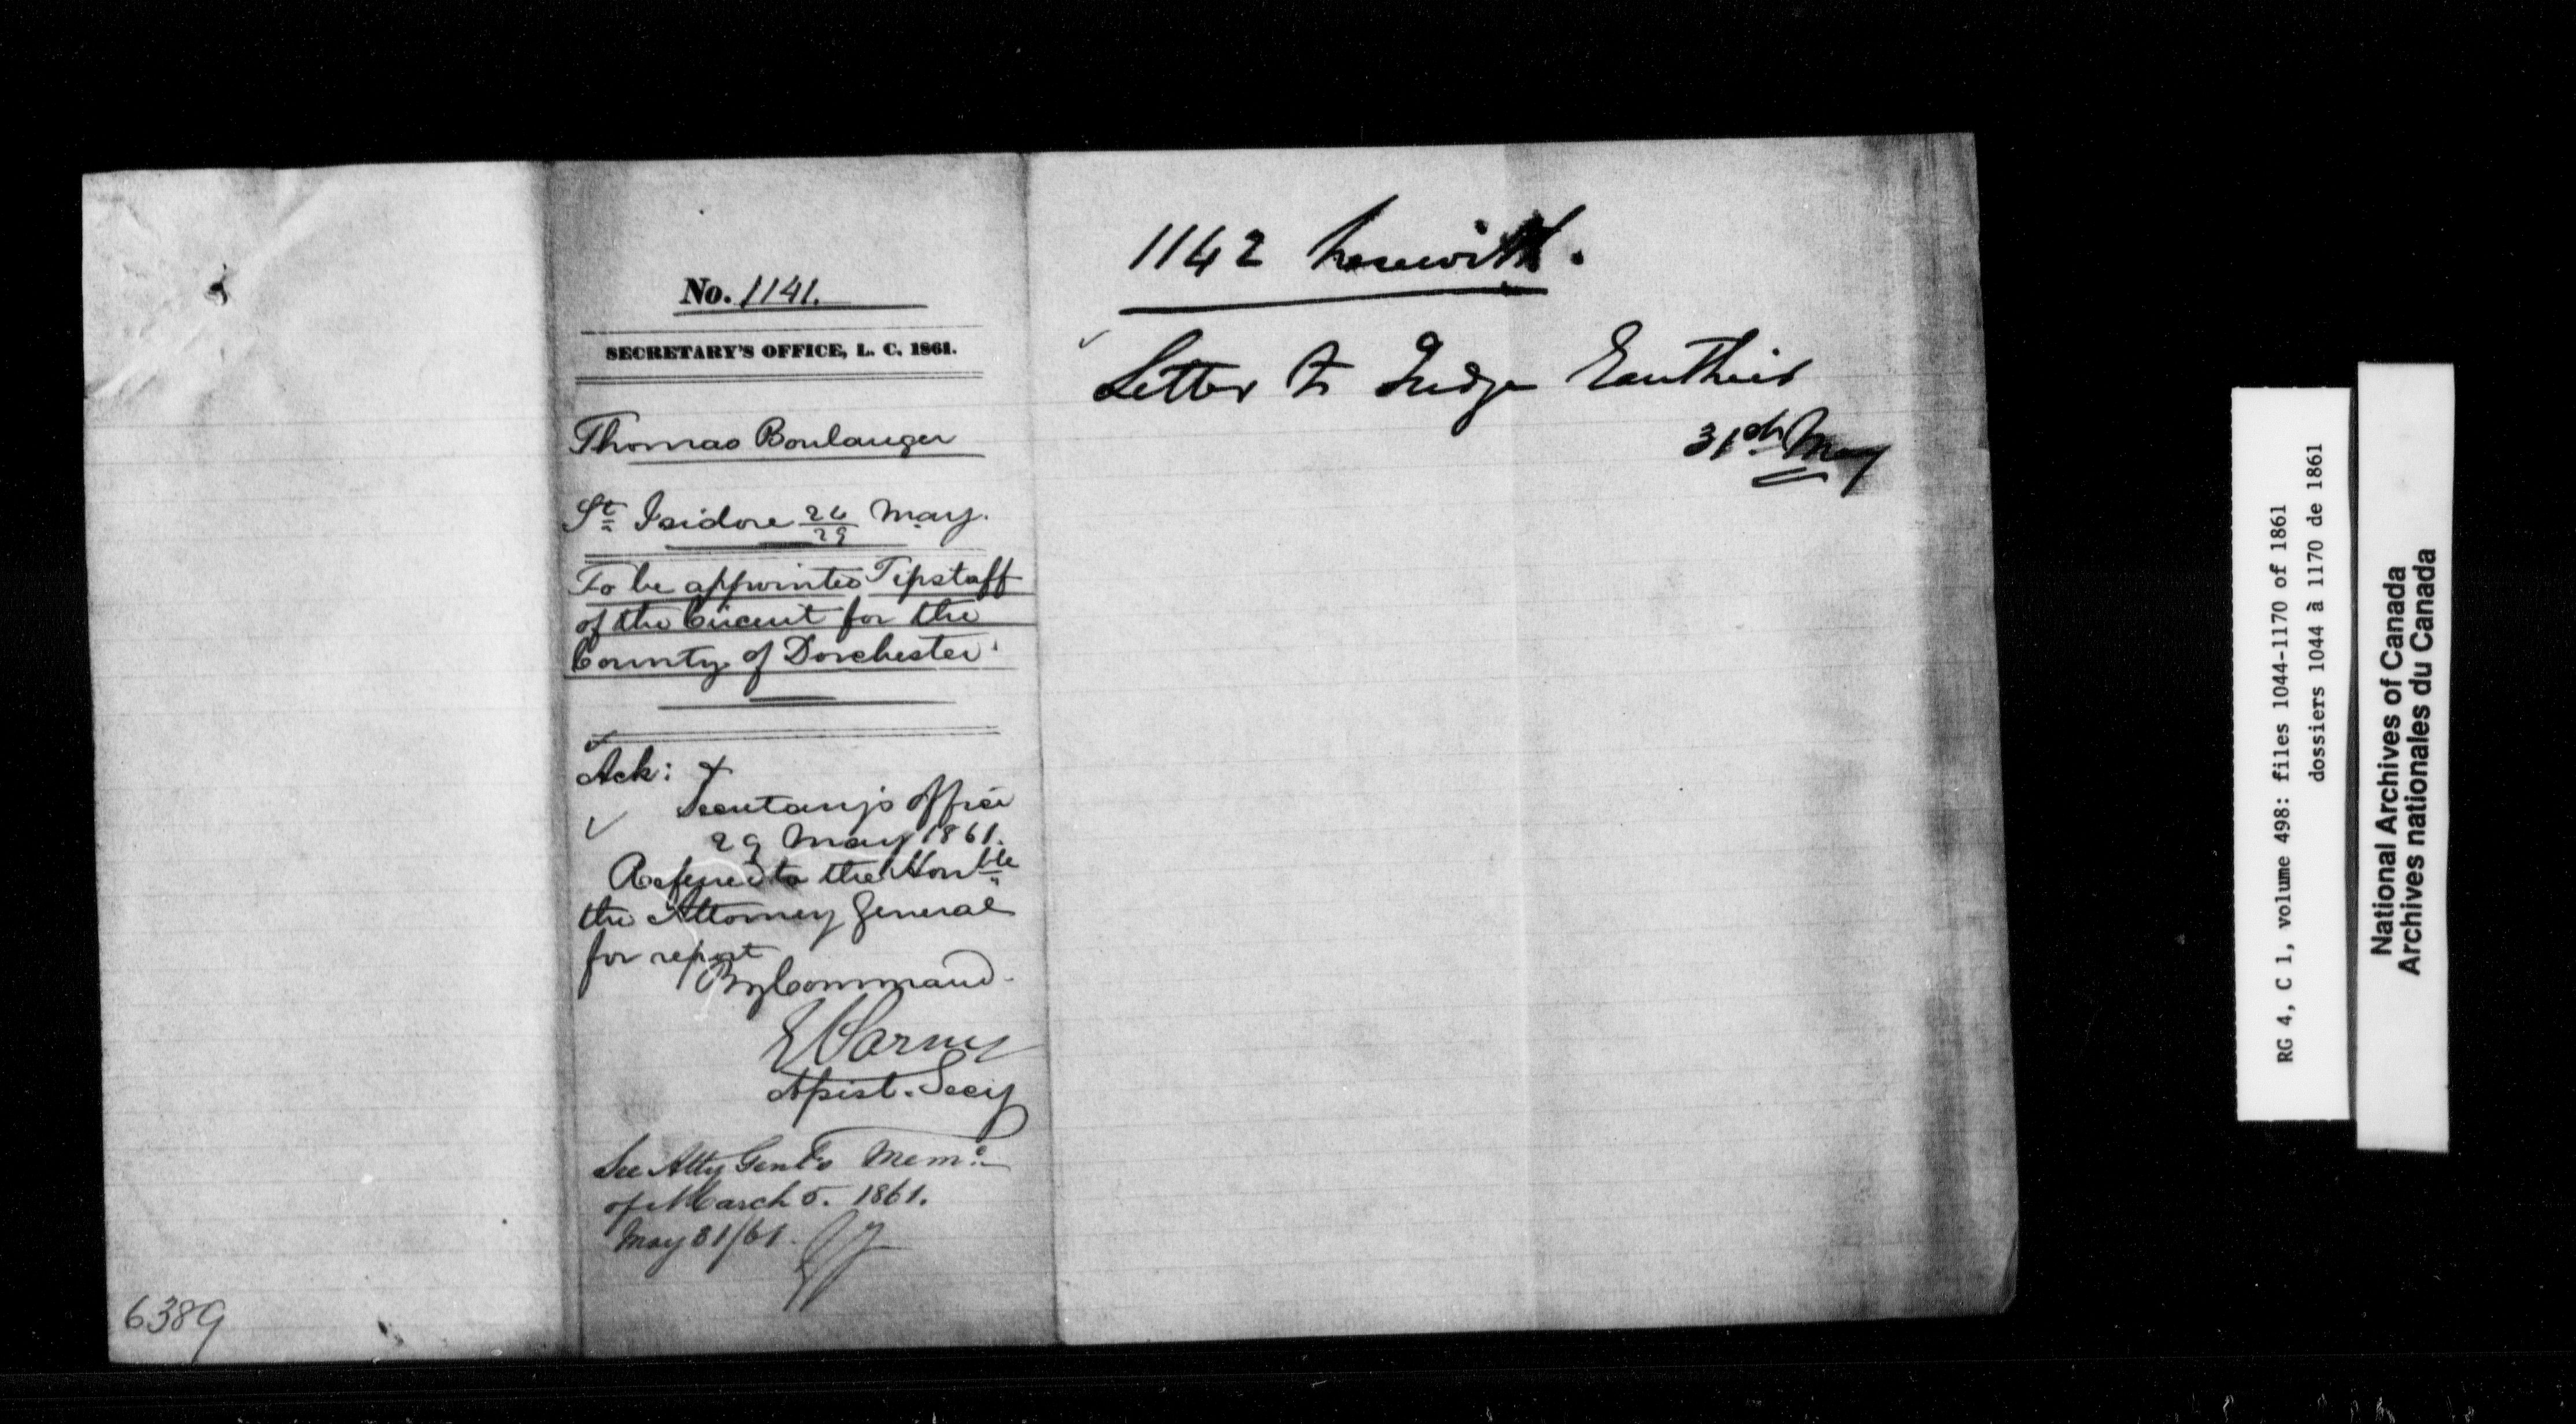 No. 1141.
SECRETARY'S OFFICE, L. C. 1861.
Thomas Boulanger
St Isidore 24/29 May.
To be appointed Tipstaff
of the Circuit for the
County of Dorchester.
Ack: +
Secretary's Office
29 May 1861.
Referred to the Honble
the Attorney General
for report
By Command.
Assist. Secy
See Atty Genl's Memo
of March 5. 1861.
May 31/61.
1142 herewith.
Letter to Judge Gauthier
31st May
6389
RG 4, C 1, volume 498: files 1044-1170 of 1861
dossiers 1044 à 1170 de 1861
National Archives of Canada
Archives nationales du Canada